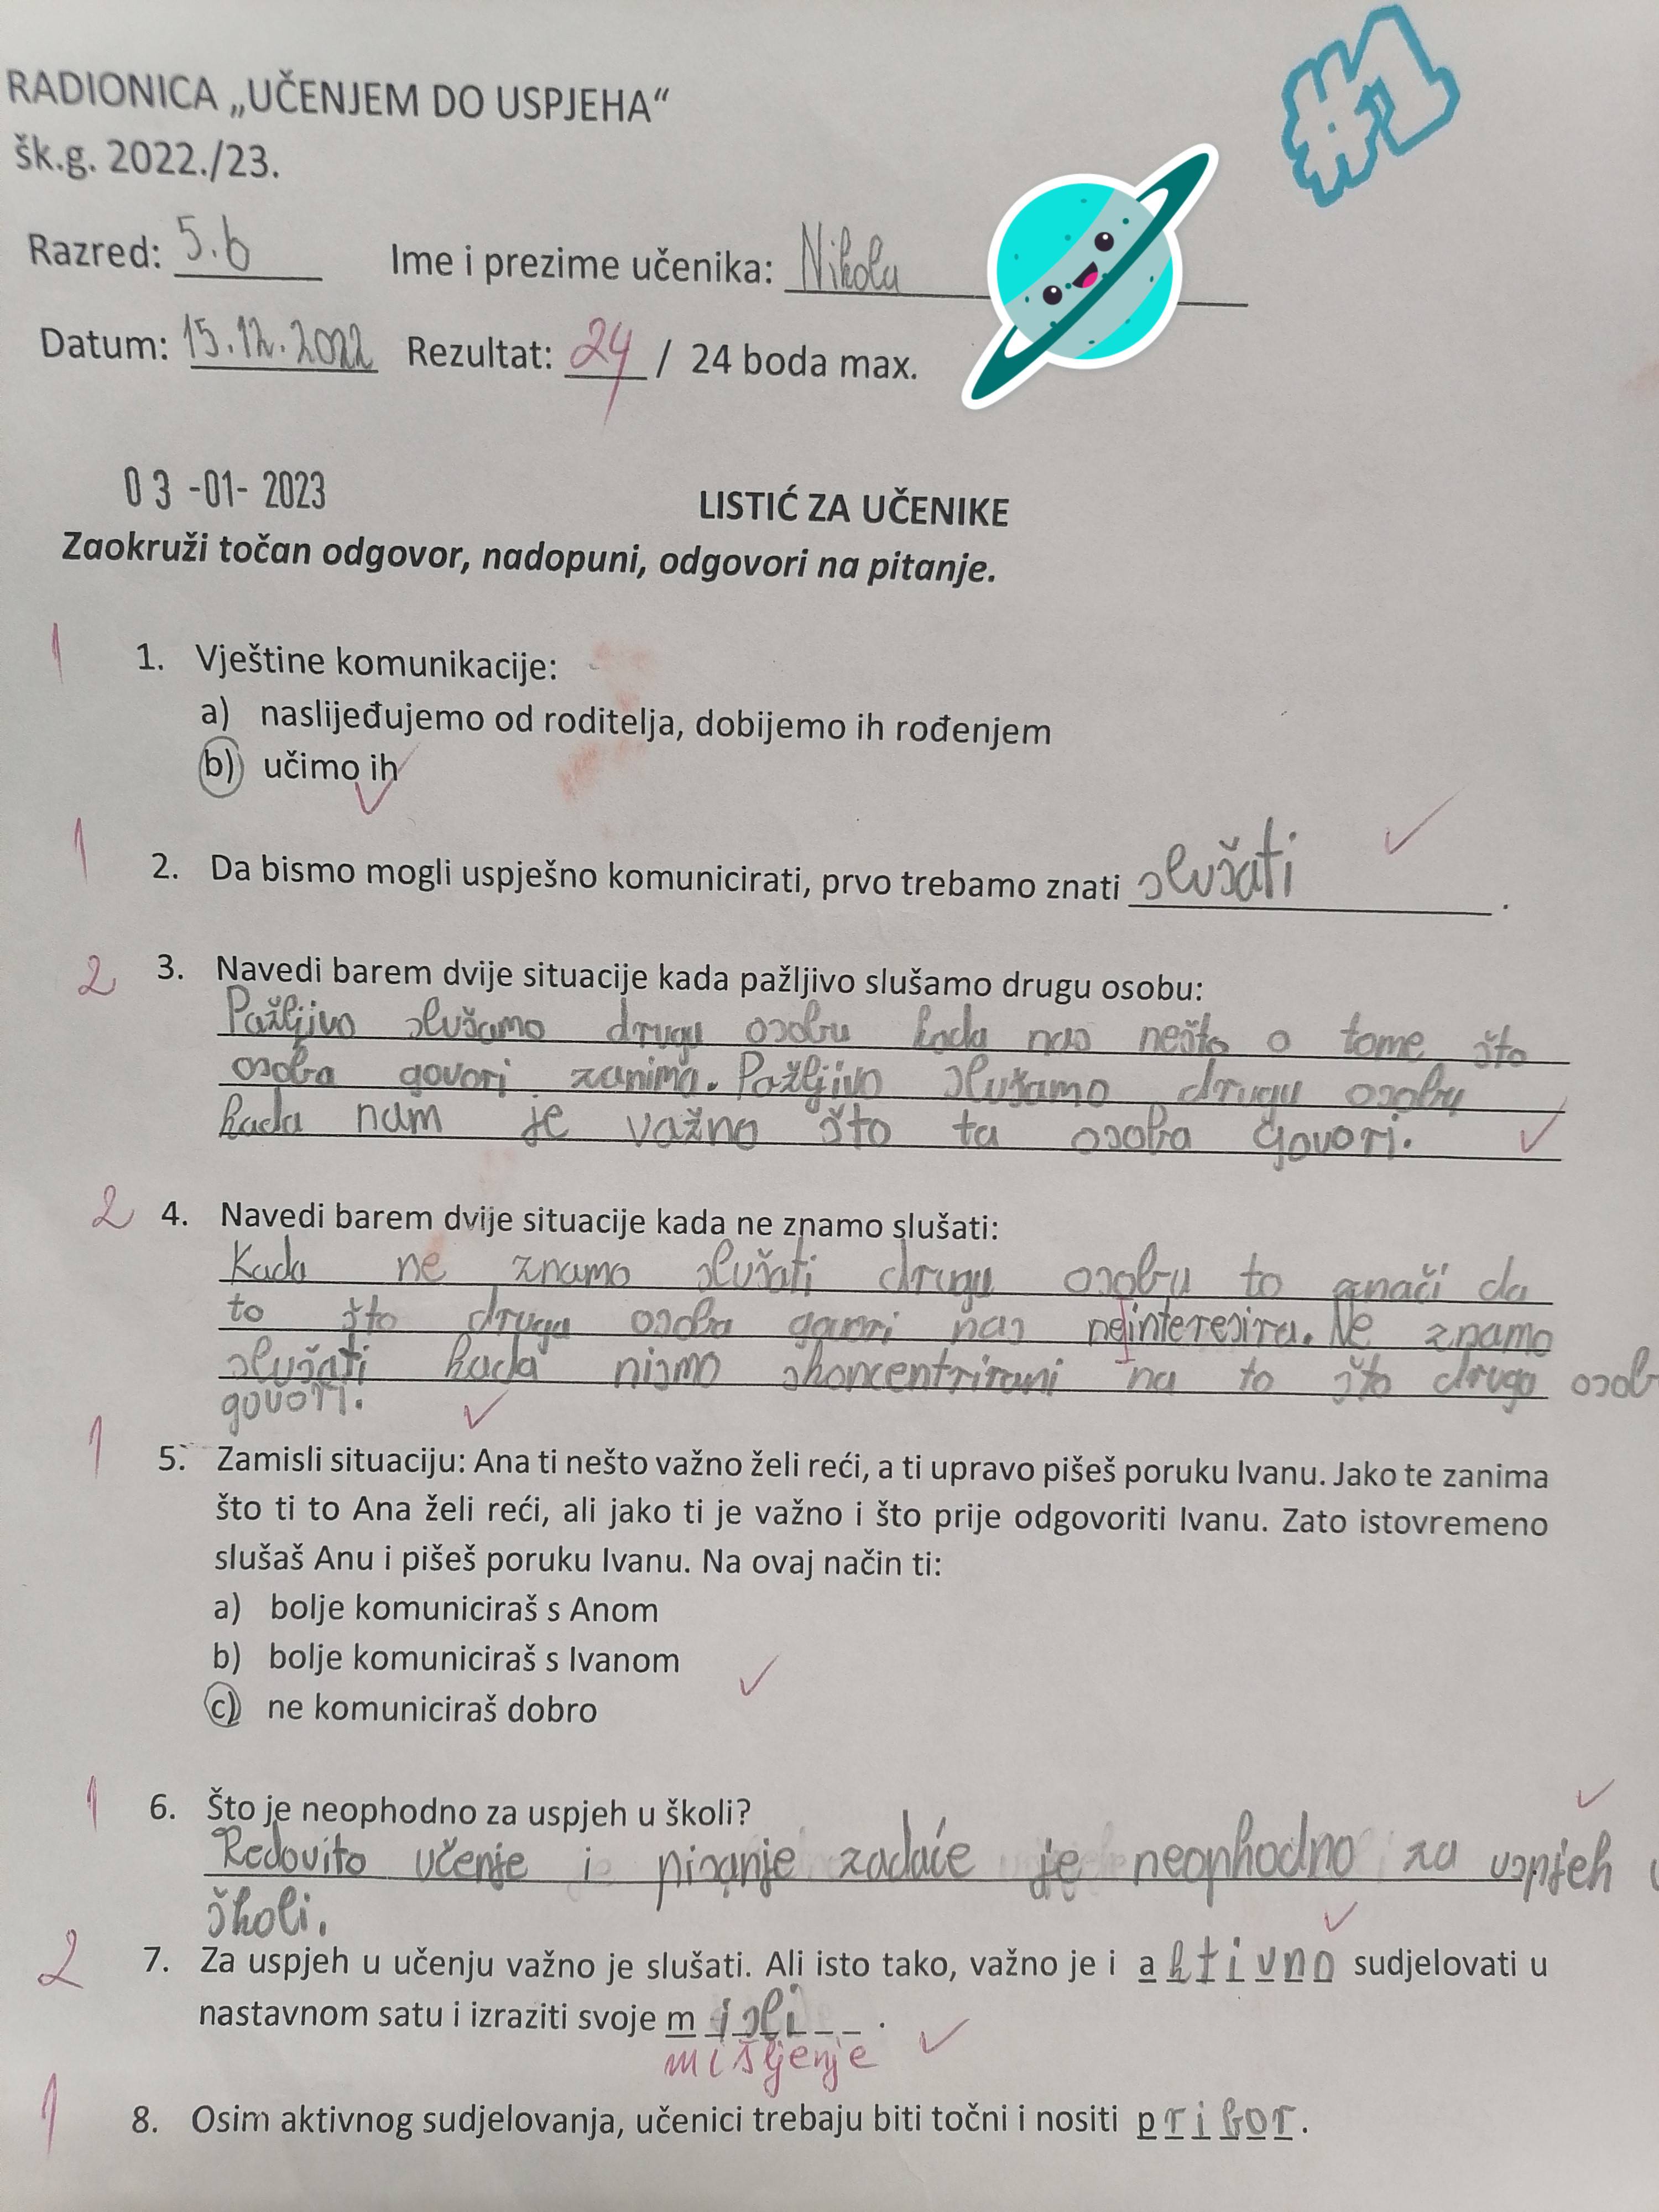 #1
RADIONICA „UČENJEM DO USPJEHA“
šk.g. 2022./23.
Razred: 5.b Ime i prezime učenika: Nikola
Datum: 15.12.2022 Rezultat: 24 / 24 boda max.
03 -01- 2023
LISTIĆ ZA UČENIKE
Zaokruži točan odgovor, nadopuni, odgovori na pitanje.
1 1. Vještine komunikacije:
a) naslijeđujemo od roditelja, dobijemo ih rođenjem
b) učimo ih
1 2. Da bismo mogli uspješno komunicirati, prvo trebamo znati slušati.
2 3. Navedi barem dvije situacije kada pažljivo slušamo drugu osobu:
Pažljivo slušamo drugu osobu kada nas nešto o tome što
osoba govori zanima. Pažljivo slušamo drugu osobu
kada nam je važno što ta osoba govori.
2 4. Navedi barem dvije situacije kada ne znamo slušati:
Kada ne znamo slušati drugu osobu to znači da
to što druga osoba govori nas neinteresira. Ne znamo
slušati kada nismo skoncentrirani na to što druga osob
govori.
1 5. Zamisli situaciju: Ana ti nešto važno želi reći, a ti upravo pišeš poruku Ivanu. Jako te zanima
što ti to Ana želi reći, ali jako ti je važno i što prije odgovoriti Ivanu. Zato istovremeno
slušaš Anu i pišeš poruku Ivanu. Na ovaj način ti:
a) bolje komuniciraš s Anom
b) bolje komuniciraš s Ivanom
c) ne komuniciraš dobro
1 6. Što je neophodno za uspjeh u školi?
Redovito učenje i pisanje zadaće je neophodno za uspjeh u
školi.
2 7. Za uspjeh u učenju važno je slušati. Ali isto tako, važno je i aktivno sudjelovati u
nastavnom satu i izraziti svoje misli_ _.
mišljenje
1 8. Osim aktivnog sudjelovanja, učenici trebaju biti točni i nositi pribor.